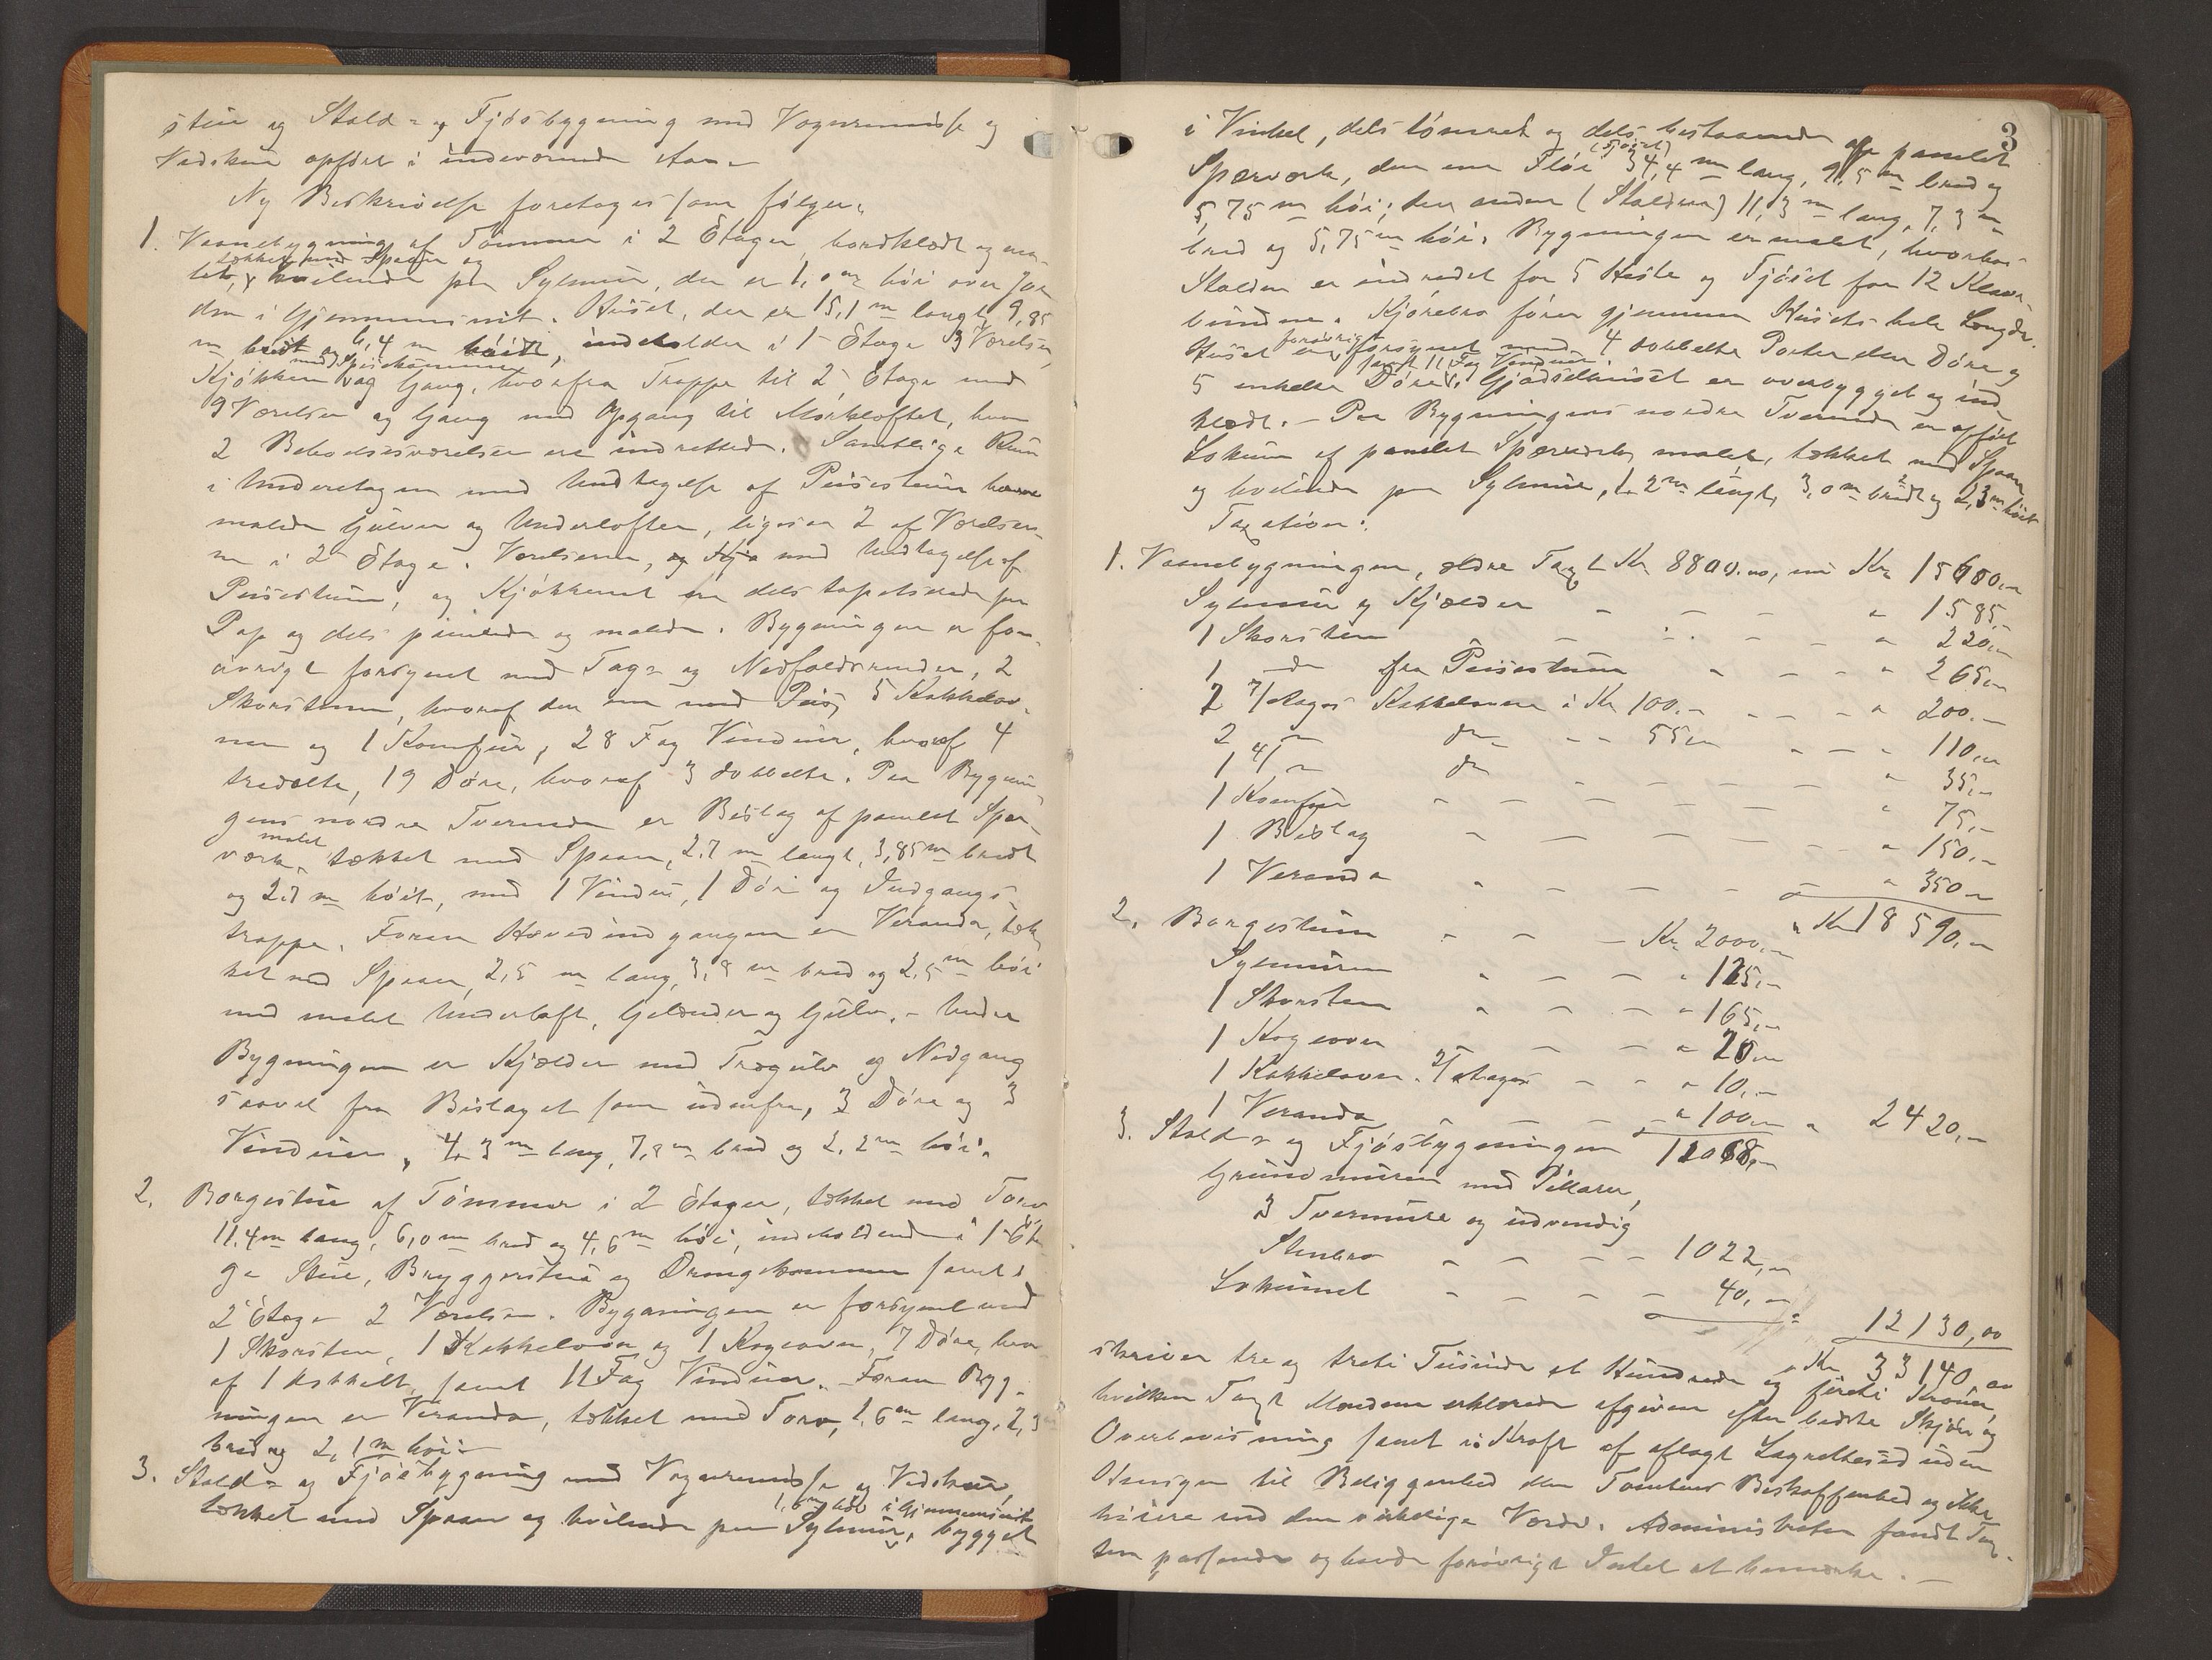 stue og Stald- og Fjøsbygning med Vognremisse og
Vedskur opført i indeværende Aar.
Ny Beskrivelse foretages som følger:
1. Vaanebygning af Tømmer i 2 Etager, bordklædt og ma-
tækket med Spaan og
let, hvilende paa Sylmur, der er 1,0 m høi over Jor
den i Gjennemsnit. Huset, der er 15,1 m langt, 9,85
m bredt og 6,4 m høidt, indeholder i 1 Etage 3 Værelser,
med Spisekammer
Kjøkken og Gang, hvorfra Trappe til 2 Etage med
9 Værelser og Gang med Opgang til Mørkloftet, hvor
2 Beboelsesværelser ere indrettede. Samtlige Rum
i Underetagen med Undtagelse af Peisestuen have
malede Gulver og Underlofter, ligesaa 2 af Værelser-
ne i 2 Etage. Værelserne, og Kjø med Undtagelse af
Peisestuen, og Kjøkkenet er dels tapetserede paa
Pap og dels panelede og malede. Bygningen er for-
øvrigt forsynet med Tag- og Nedfaldsrender, 2
Skorstene, hvoraf den ene med Peis, 5 Kakkelov-
ner og 1 Komfur, 28 Fag Vinduer, hvoraf 4
tredelte, 19 Døre, hvoraf 3 dobbelte. Paa Bygnin-
gens nordre Tverende er Bislag af panelet Sper-
malet
værk, tækket med Spaan, 2,7 m langt, 3,85 m bredt
og 2,7 m høit, med 1 Vindu, 1 Dør og Indgangs-
trappe. Foran Hovedindgangen er Veranda, tæk-
ket med Spaan, 2,5 m lang, 3,8 m bred og 2,5 m høi
med malet Underloft, Gelænder og Gulv. - Under
Bygningen er Kjælder med Trægulv og Nedgang
saavel fra Bislaget som udenfra, 3 Døre og 3
Vinduer, 4,3 m lang, 7,8 m bred og 2,2 m høi.
2. Borgestue af Tømmer i 2 Etager, tækket med Torv
11,4 m lang, 6,0 m bred og 4,6 m høi, indeholdende i 1 Eta
ge Stue, Bryggerstue og Drengekammer samt i
2 Etage 2 Værelser. Bygningen er forsynet med
1 Skorsten, 1 Kakkelovn og 1 Kogeovn, 7 Døre, hvor
af 1 dobbelt, samt 11 Fag Vinduer. Foran Byg-
ningen er Veranda, tækket med Torv, 2,6 m lang, 2,3
bred og 2,1 m høi.
3. Stald- og Fjøsbygning med Vognremisse og Vedskur,
1,6 m høi i Gjennemsnit
tækket med Spaan og hvilende paa Sylmur, bygget
3
i Vinkel, dels tømret og dels bestaaende af panelet
(Fjøset)
Sperværk, den ene Fløi 34,4 m lang, 9,5 m bred og
5,75 m høi; den anden (Stalden) 11,3 m lang, 7,3 m
bred og 5,75 m høi. Bygningen er malet, hvorhos
Stalden er indredet for 5 Heste og Fjøset for 12 Klav-
bundne. Kjørebro fører gjennem Husets hele Længde.
forøvrigt
Huset er forsynet med 4 dobbelte Porter eller Døre og
samt 11 Fag Vinduer.
5 enkelte Døre. Gjødselhuset er overbygget og ind-
klædt. - Paa Bygningens nordre Tverende er opført
Lokum af panelet Sperværk, malet, tækket med Spaan
og hvilende paa Sylmur, 1,2 m langt, 3,0 m bredt og 2,3 m høit
Taxation:
1. Vaanebygningen, ældre Taxt Kr. 8800.00, nu Kr. 15600,-
Sylmur og Kjælder - - - " 1585,-
1 Skorsten - - - " 220,-
1 do fra Peisestuen - - - " 265,-
2 7/ Etages Kakkelovne à Kr. 100.- - - " 200.-
2 " do - - 55,- - - " 110,-
1 4/ " do - - - " 35,-
1 Komfur - - - " 75,-
1 Bislag - - - " 150,-
1 Veranda - - - " 350,-
" Kr 18590,-
2. Borgestuen - - - Kr. 2000,-
Sylmuren - - - " 125,-
1 Skorsten - - - " 165,-
1 Kogeovn - - - " 20,-
1 Kakkelovn 2/ Etages - - " 10,-
1 Veranda - - - " 100,- " 2420,-
3. Stald- og Fjøsbygningen 11068,-
Grundmuren med Pillarer,
3 Tvermure og udvendig
Stenbro - - - - 1022,-
Lokumet - - - - 40,-
" 12130,00
" Kr 33140,00
skriver tre og treti Tusinde et Hundrede og firti Kroner,
hvilken Taxt Mændene erklærede afgiven efter bedste Skjøn og
Overbevisning samt i Kraft af aflagt Lagrettesed uden
Hensyn til Beliggenhed eller Tomtens Beskaffenhed og ikke
høiere end den virkelige Værdi. Administrator fandt Tax-
ten passende og havde forøvrigt Intet at bemærke. -